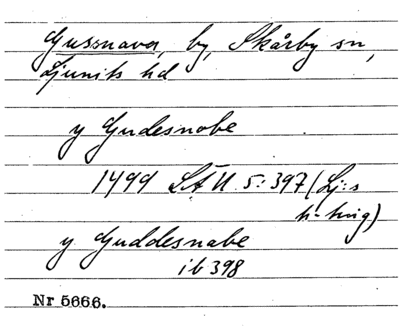 Gussnava, by, Skårby sn,
Ljunits hd
y Gudesnobe
1499 LÄU 5:397 (Lj:s
h-ting)
y Guddesnabe
ib 398
Nr 5666.